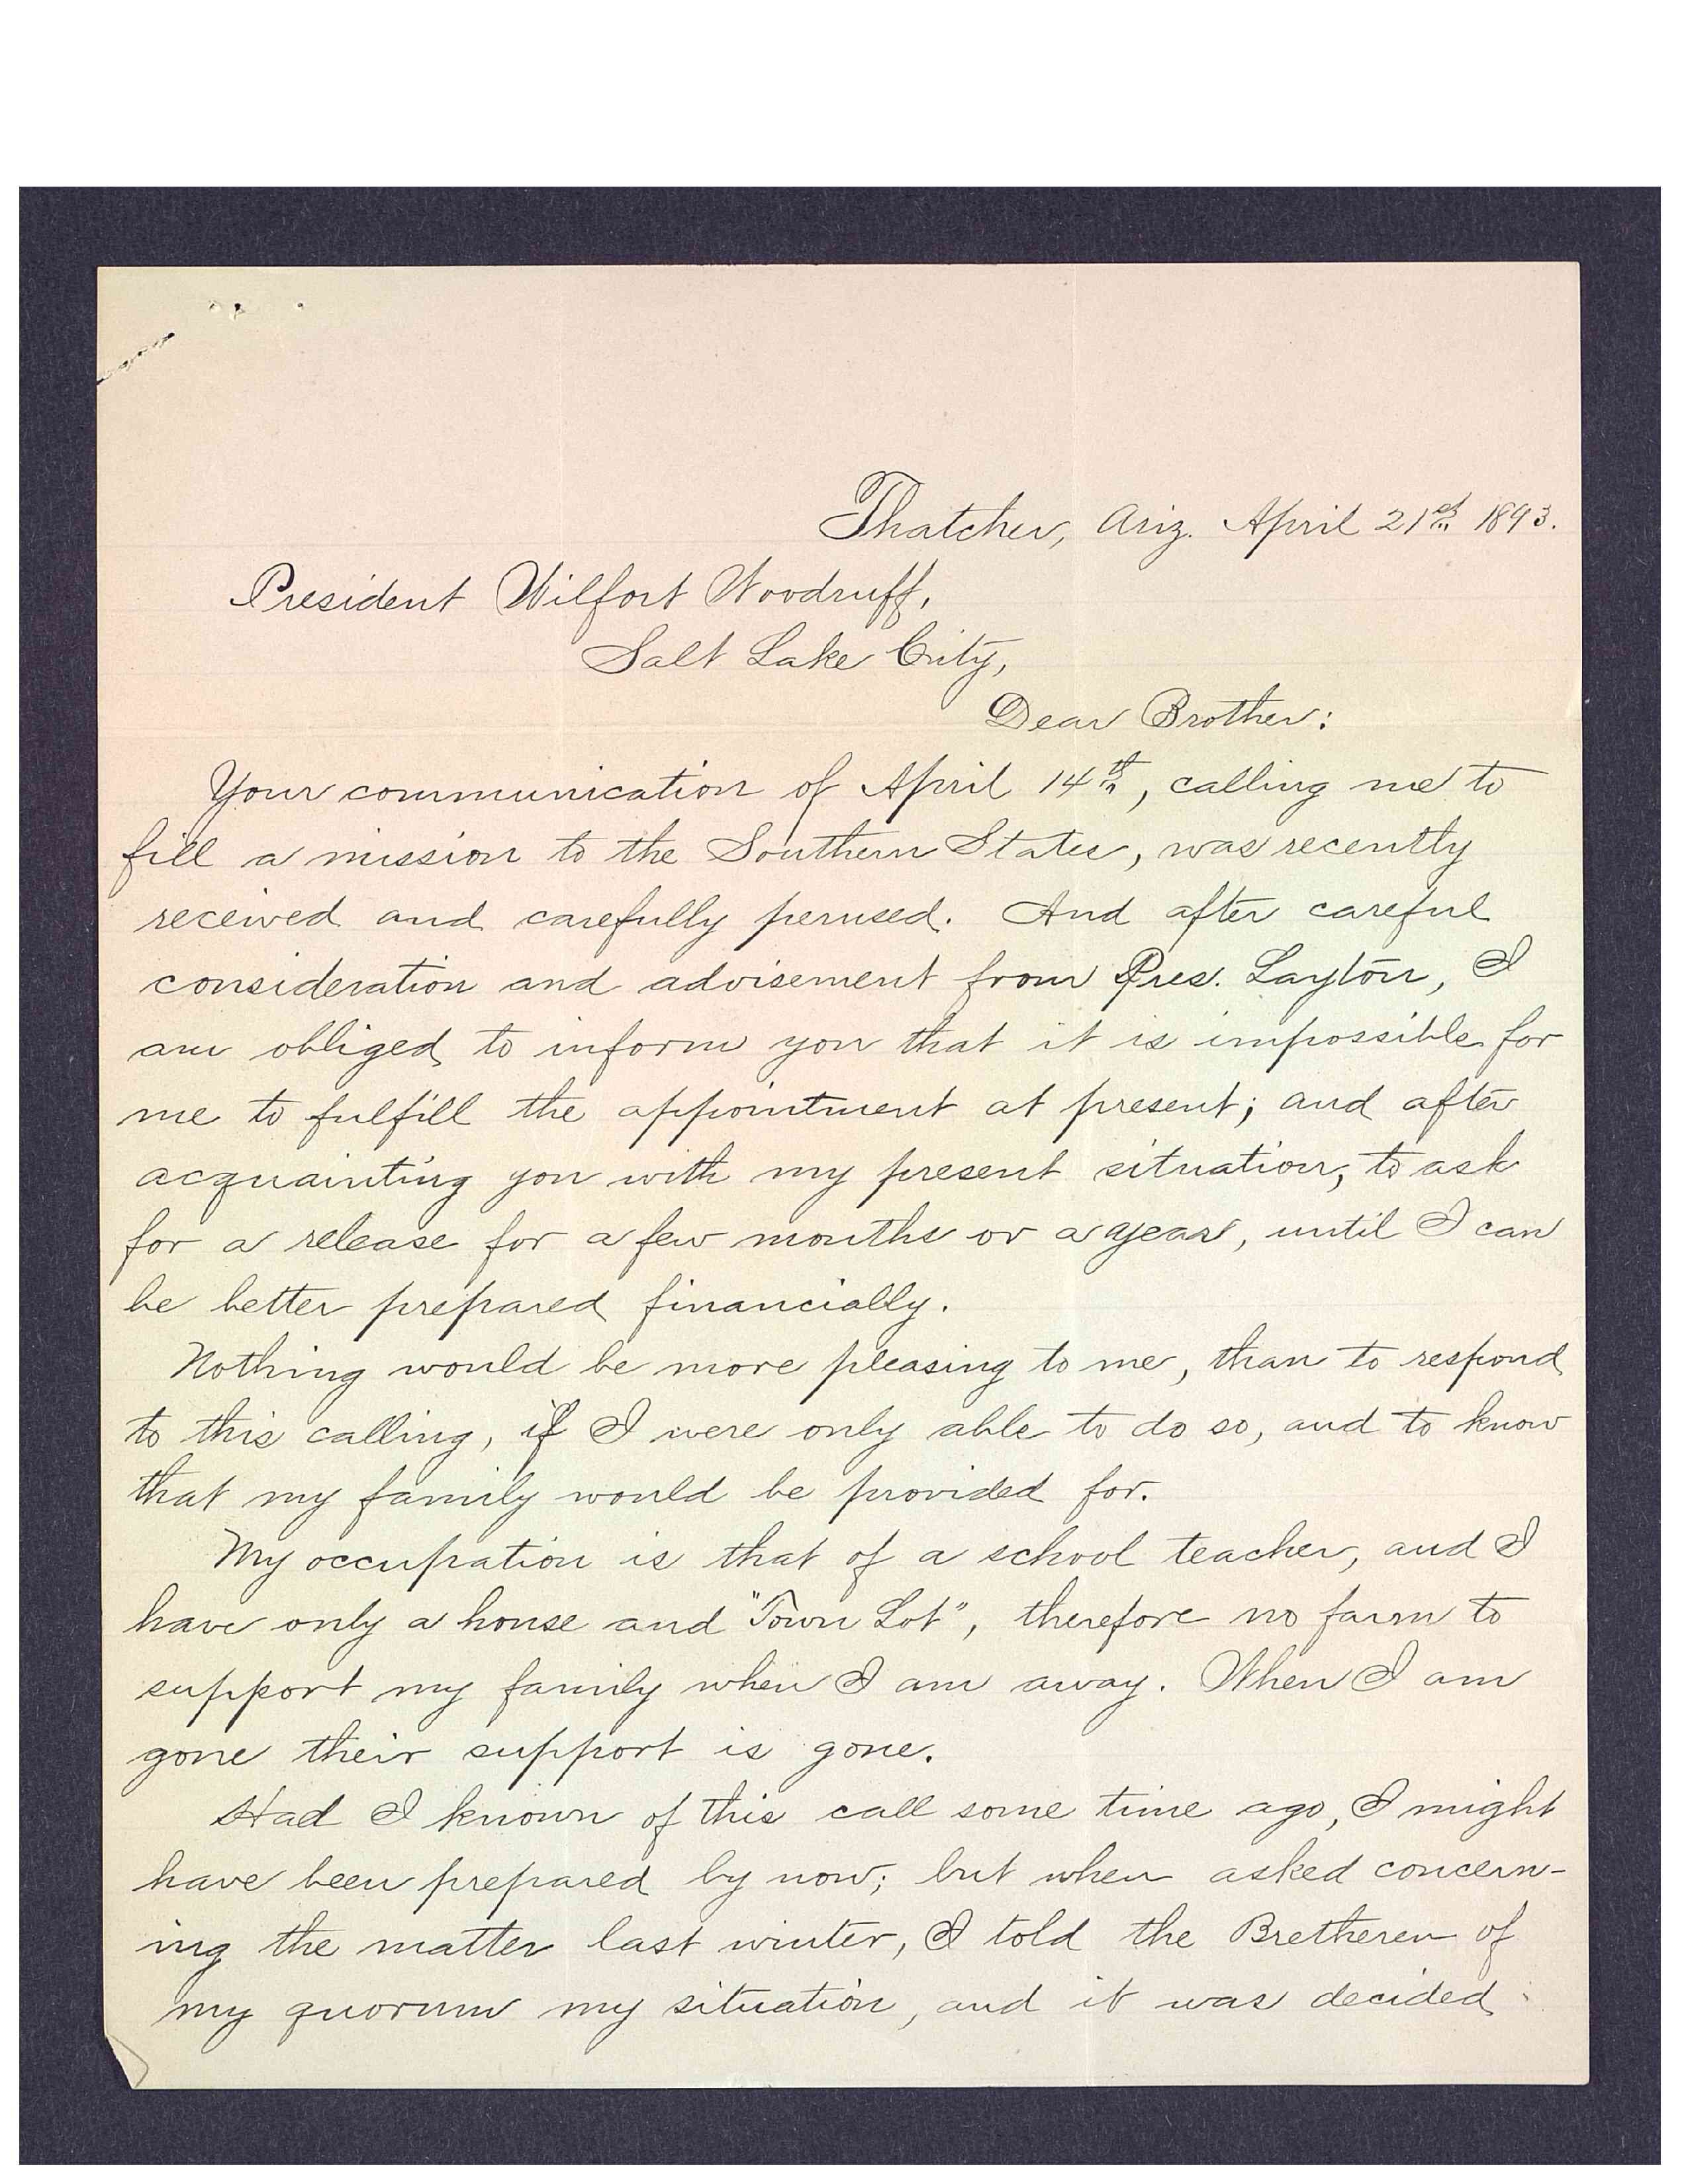 Thatcher, Ariz. April 21st 1893.
President Wilfort Woodruff,
Salt Lake City,
Dear Brother:
Your communication of April 14th, calling me to
fill a mission to the Southern States, was recently
received and carefully perused. And after careful
consideration and advisement from Pres. Layton, I
am obliged to inform you that it is impossible for
me to fulfill the appointment at present; and after
acquainting you with my present situation, to ask
for a release for a few months or a year, until I can
be better prepared financially.
Nothing would be more pleasing to me, than to respond
to this calling, if I were only able to do so, and to know
that my family would be provided for.
My occupation is that of a school teacher, and I
have only a house and "Town Lot", therefore no farm to
support my family when I am away. When I am
gone their support is gone.
Had I known of this call some time ago, I might
have been prepared by now; but when asked concern-
ing the matter last winter, I told the Bretheren of
my quorum my situation, and it was decided